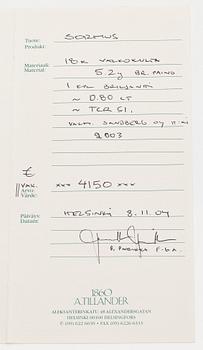 Tuote: SORMUS
Produkt:
Materiaali: 18K VALKOKULTA
Material: 5.2g BR. PAINO
1 KPL BRILJANTTI
~ 0.80 CT
~ TCR SI.
VALM. SANDBERG OY
2003
€
VAK.
Arvo: xxx 4150 xxx
Värde:
Päiväys: HELSINKI 8.11.04
Datum:
1860
A.TILLANDER
ALEKSANTERINKATU 48 ALEXANDERSGATAN
HELSINKI 00100 HELSINGFORS
P. (09) 622 6639 • FAX (09) 6226 6333